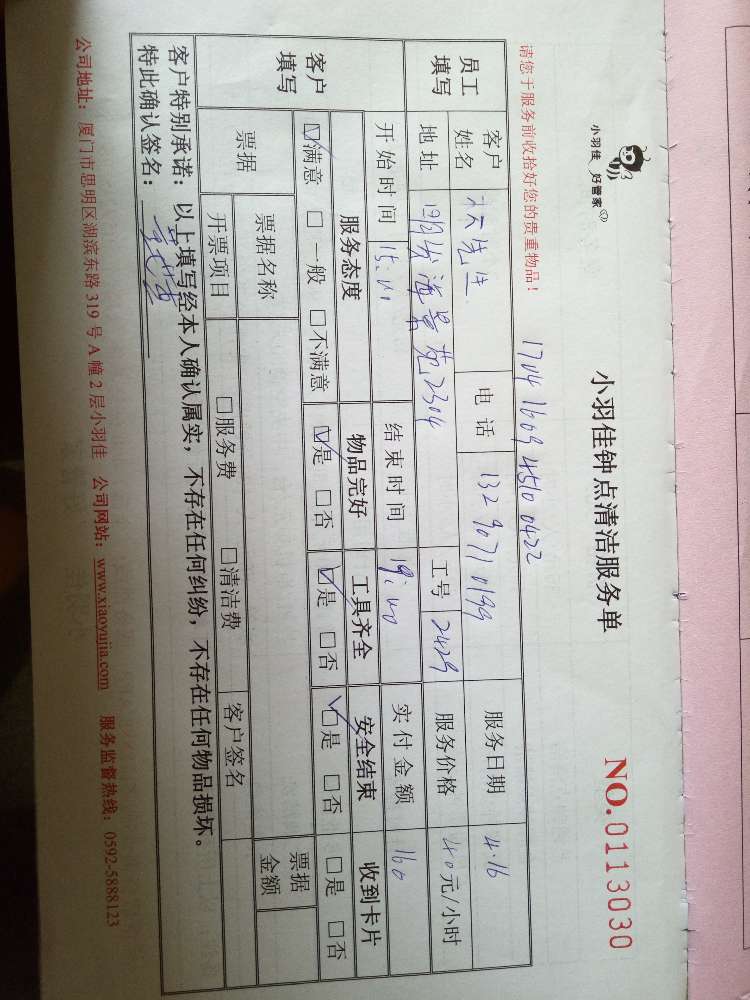 小羽佳 好管家
小羽佳钟点清洁服务单
NO.0113030
请您于服务前收拾好您的贵重物品！
1704 1609 4510 0422
员工填写 客户姓名 先生 电话 132 9071 0199 服务日期 4.16
地址 海景苑2304 工号 2429 服务价格 40元/小时
开始时间 15:00 结束时间 19:00 实付金额 160
客户填写 服务态度 物品完好 工具齐全 安全结束 收到卡片
☑满意 □一般 □不满意 ☑是 □否 ☑是 □否 ☑是 □否 □是 □否
票据 票据名称 票据金额
开票项目 □服务费 □清洁费 客户签名
客户特别承诺：以上填写经本人确认属实，不存在任何纠纷，不存在任何物品损坏。
特此确认签名：
公司地址：厦门市思明区湖滨东路 319 号 A 幢 2 层小羽佳 公司网站：www.xiaoyujia.com 服务监督热线：0592-5888123